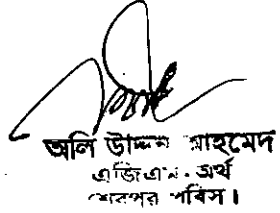 অলি উদ্দিন আহমেদ
এজিএম - অর্থ
শেরপুর পবিস।